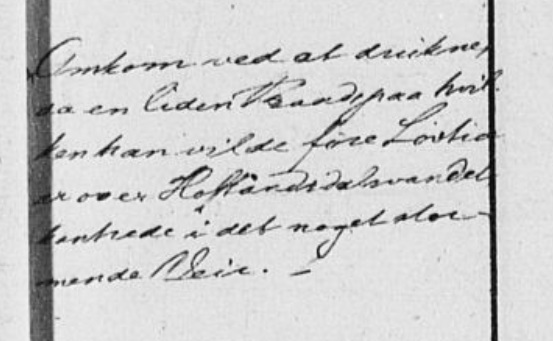 Omkom ved at drukne,
da en liden Baad, paa hvil-
ken han vilde føre Løvtio
ar over Hoflandsdalsvandet
kantrede i det noget stor-
mende Veir. –